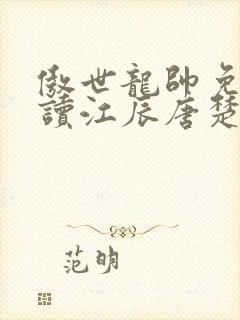 傲世龍帥免
讀江辰唐楚
范明